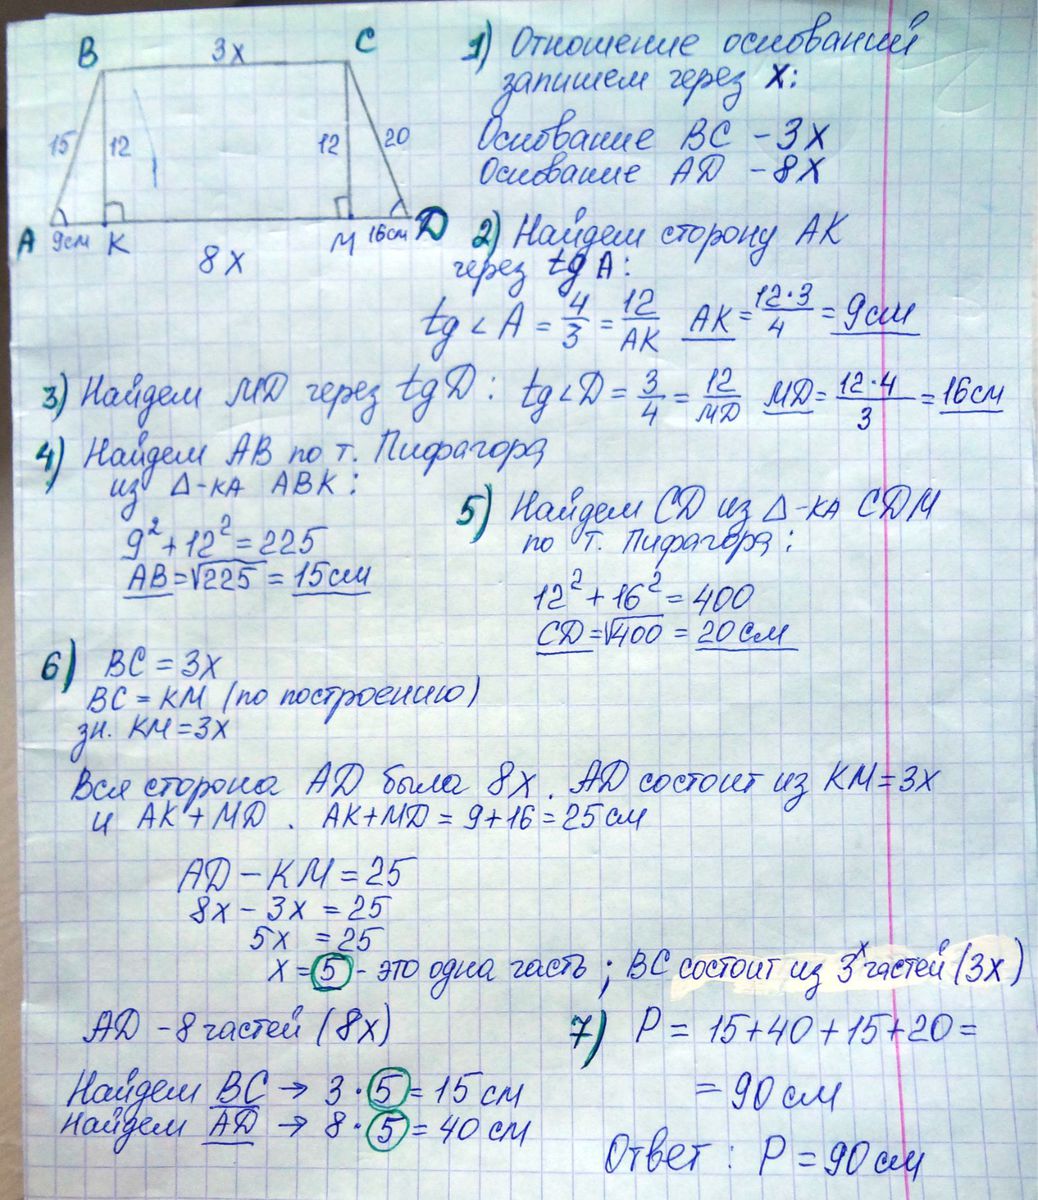 B 3x C
15 12 12 20
A 9см K M 16см D
8x
1) Отношение оснований
запишем через x:
Основание BC - 3x
Основание AD - 8x
2) Найдем сторону AK
через tg A:
tg < A = 4/3 = 12/AK AK = 12·3/4 = 9см
3) Найдем MD через tg D : tg < D = 3/4 = 12/MD MD = 12·4/3 = 16см
4) Найдем AB по т. Пифагора
из Δ-ка ABK :
9² + 12² = 225
AB = √225 = 15см
5) Найдем CD из Δ-ка CDM
по т. Пифагора :
12² + 16² = 400
CD = √400 = 20см
6) BC = 3x
BC = KM (по построению)
зн. KM = 3x
Вся сторона AD была 8x . AD состоит из KM = 3x
и AK + MD . AK + MD = 9 + 16 = 25 см
AD - KM = 25
8x - 3x = 25
5x = 25
x = 5 - это одна часть ; BC состоит из 3ˣ частей (3x)
AD - 8 частей (8x)
Найдем BC → 3 · 5 = 15 см
Найдем AD → 8 · 5 = 40 см
7) P = 15 + 40 + 15 + 20 =
= 90 см
Ответ : P = 90 см